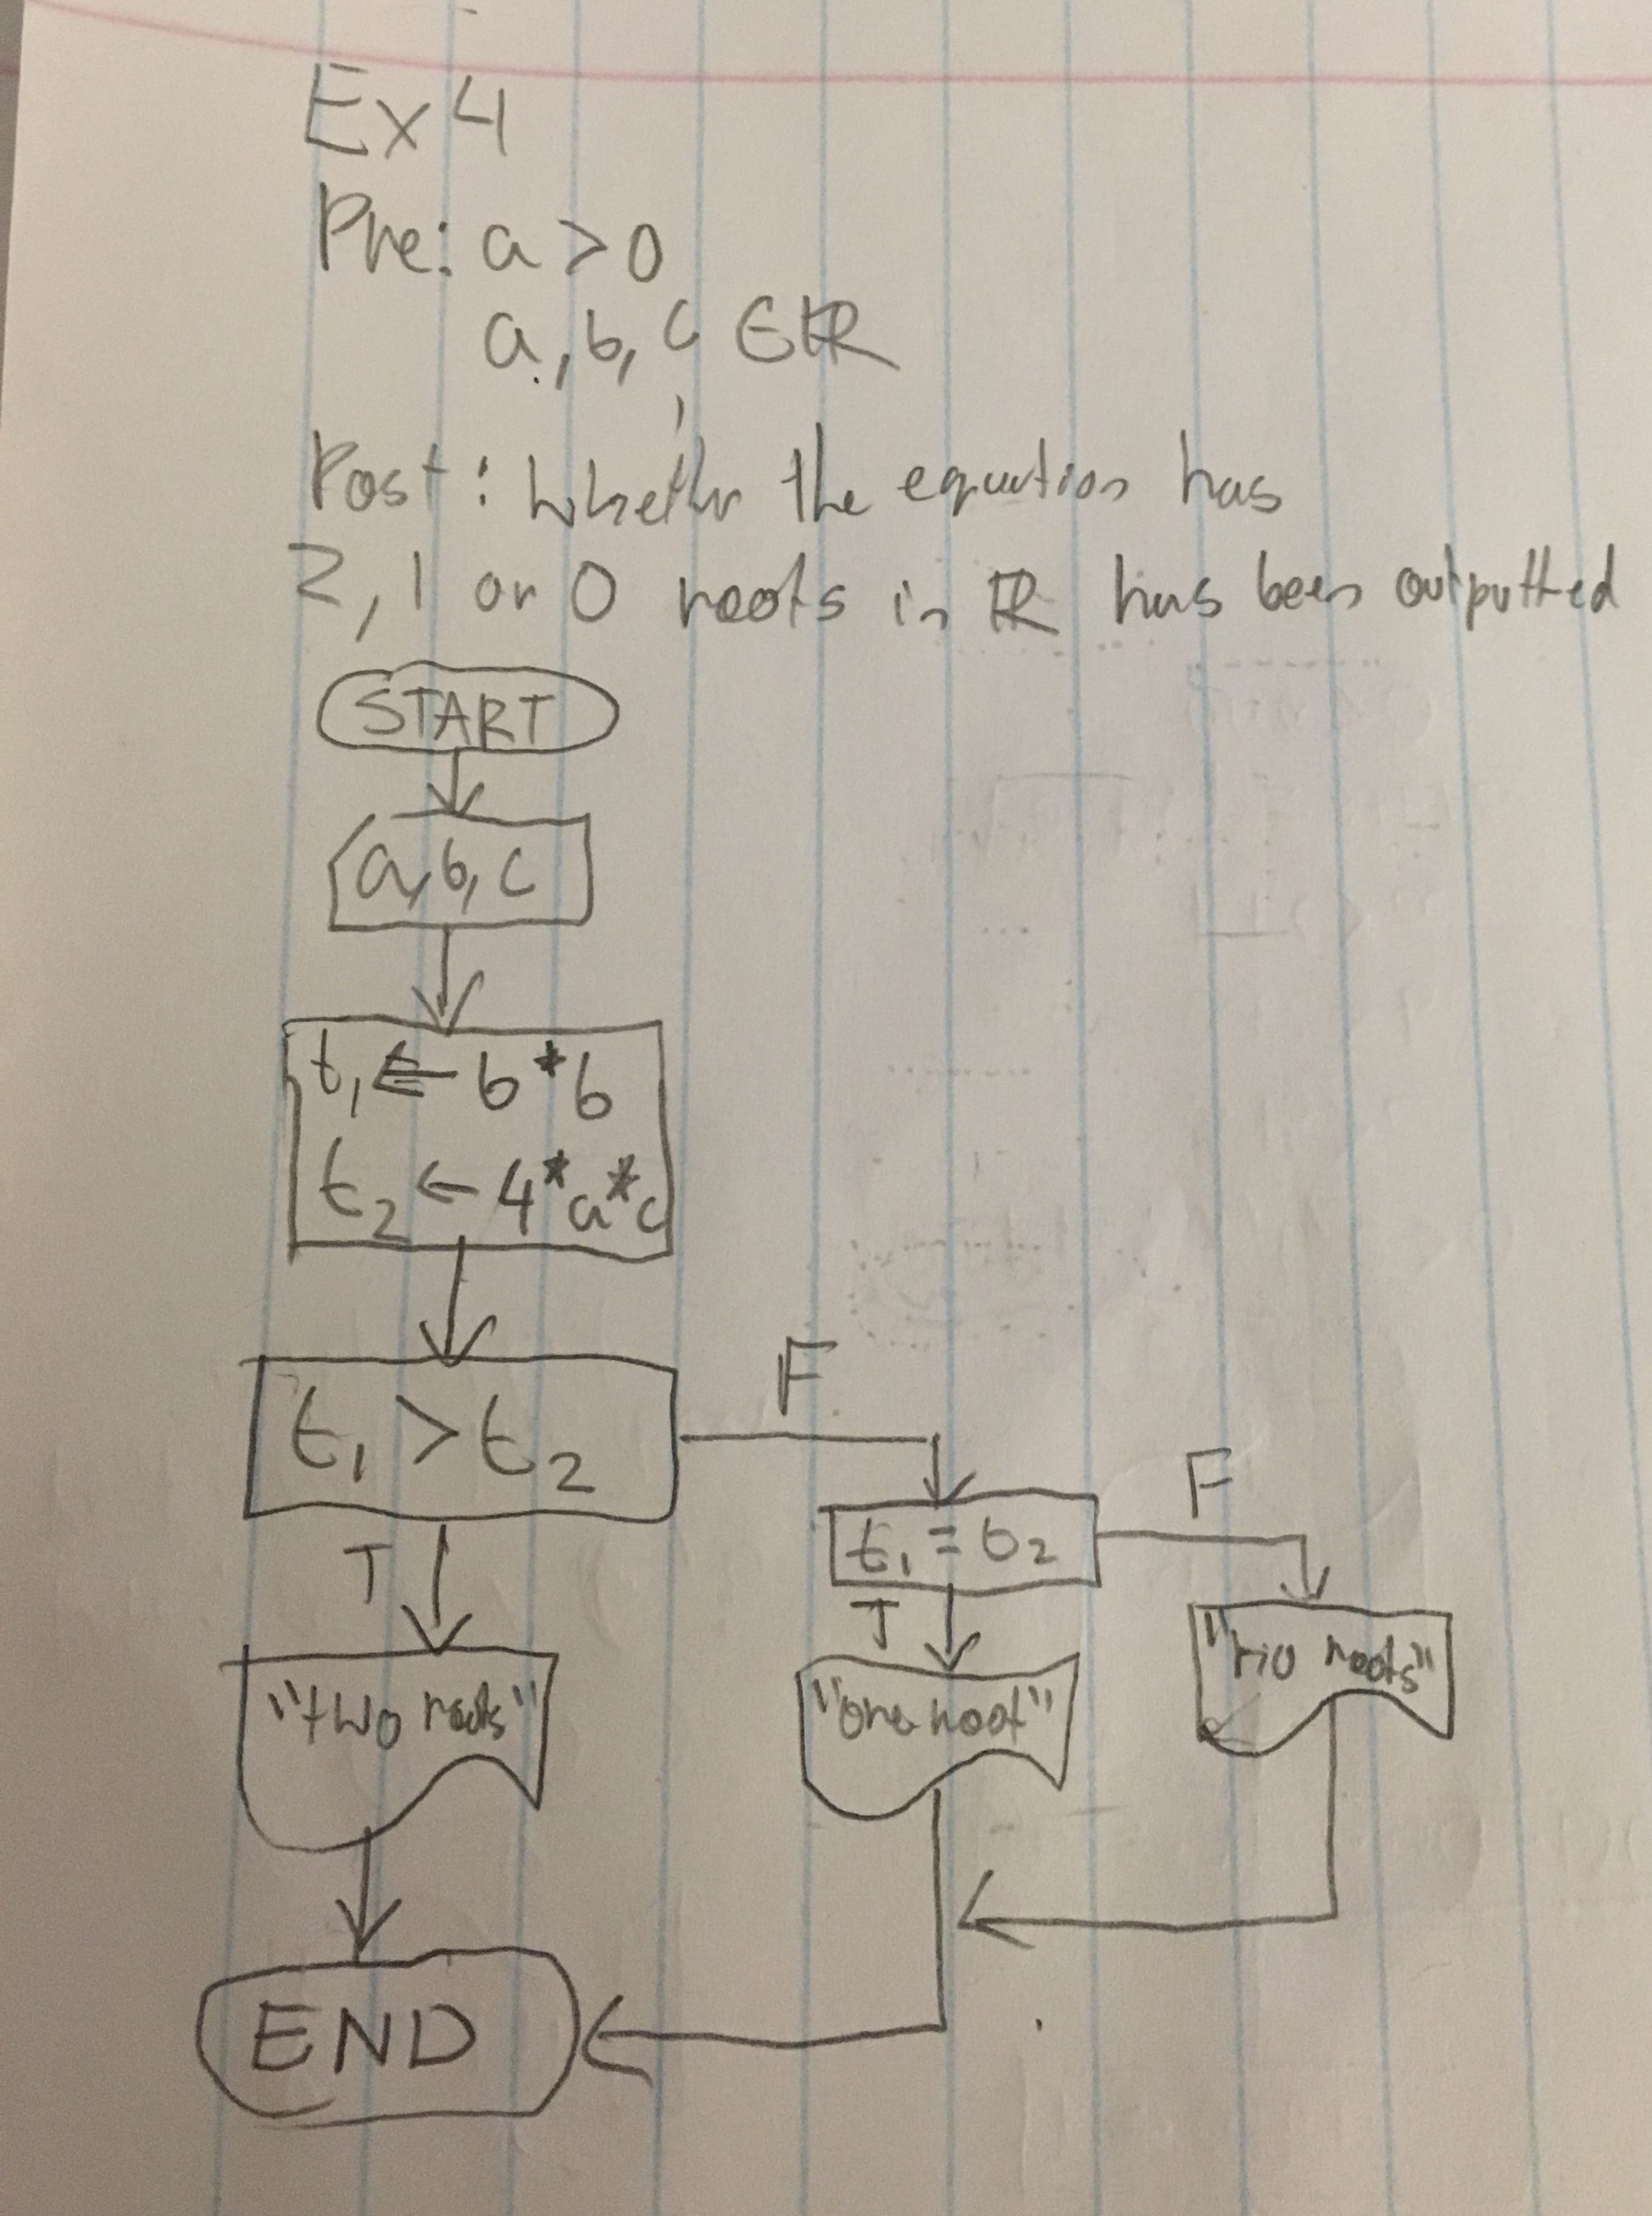 Ex 4
Pre: a > 0
a, b, c ∈ ℝ
Post: whether the equation has
2, 1 or 0 roots in ℝ has been outputted
START
a, b, c
t₁ ← b * b
t₂ ← 4 * a * c
t₁ > t₂
F
t₁ = t₂
F
T
T
"two roots"
"one root"
"no roots"
END